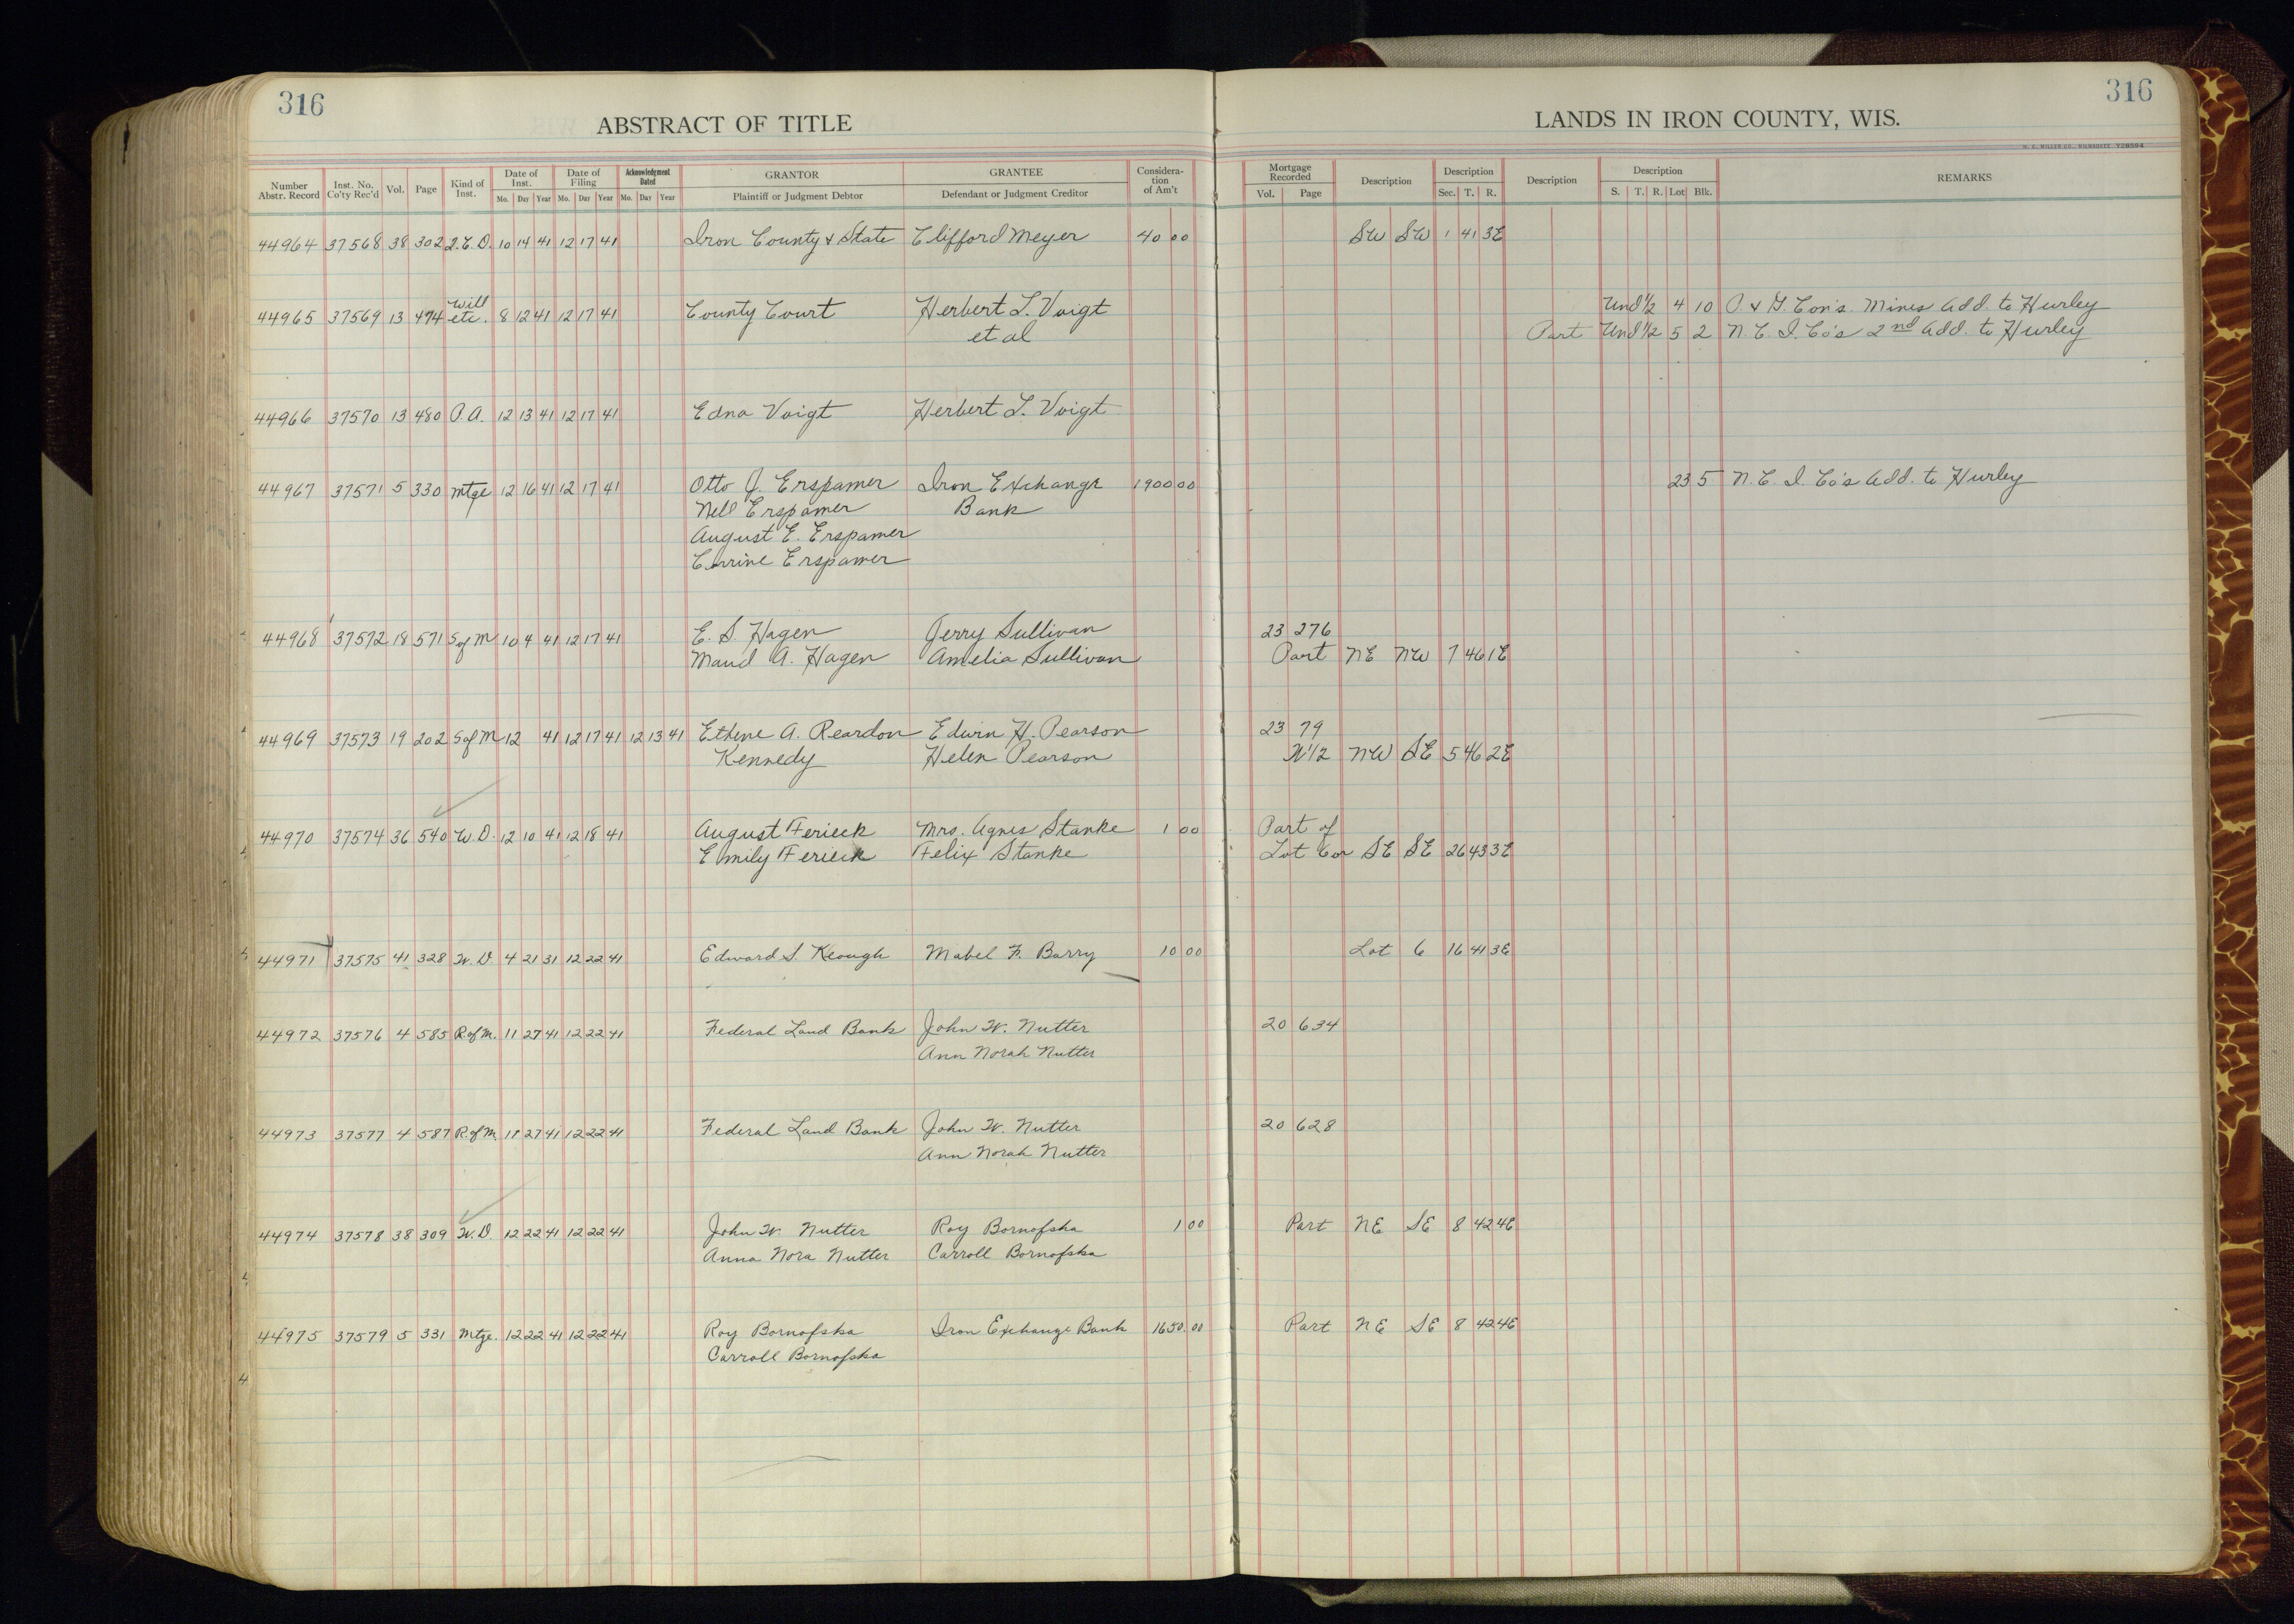 316
316
ABSTRACT OF TITLE
LANDS IN IRON COUNTY, WIS.
H. C. MILLER CO., MILWAUKEE Y28594
Number Abstr. Record Inst. No. Co'ty Rec'd Vol. Page Kind of Inst. Date of Inst. Mo. Day Year Date of Filing Mo. Day Year Acknowledgment Dated Mo. Day Year GRANTOR Plaintiff or Judgment Debtor GRANTEE Defendant or Judgment Creditor Considera-tion of Am't Mortgage Recorded Vol. Page Description Description Sec. T. R. Description Description S. T. R. Lot Blk. REMARKS
44964 37568 38 302 Q.C.D. 10 14 41 12 17 41 Iron County & State Clifford Meyer 40 00 SW SW 1 41 3E
44965 37569 13 474 Will etc. 8 12 41 12 17 41 County Court Herbert L. Voigt Und 1/2 4 10 P. & G. Con's. Mines Add. to Hurley
et al Part Und 1/2 5 2 N. C. I. Co's 2nd Add. to Hurley
44966 37570 13 480 P.A. 12 13 41 12 17 41 Edna Voigt Herbert L. Voigt
44967 37571 5 330 Mtge 12 16 41 12 17 41 Otto J. Erspamer Iron Exchange 1900 00 23 5 N. C. I. Co's Add. to Hurley
Nell Erspamer Bank
August E. Erspamer
Corrine Erspamer
44968 37572 18 571 S of M 10 4 41 12 17 41 E. S. Hagen Jerry Sullivan 23 276
Maud A. Hagen Amelia Sullivan Part NE NW 7 46 1E
44969 37573 19 202 S of M 12 41 12 17 41 12 13 41 Ethene A. Reardon Edwin H. Pearson 23 79
Kennedy Helen Pearson W1/2 NW SE 5 46 2E
44970 37574 36 540 W.D. 12 10 41 12 18 41 August Ferieck Mrs. Agnes Stanke 1 00 Part of
Emily Ferieck Felix Stanke Lot 6 or SE SE 26 43 3E
44971 37575 41 328 W.D. 4 21 31 12 22 41 Edward S. Keough Mabel F. Barry 10 00 Lot 6 16 41 3E
44972 37576 4 585 R.of M. 11 27 41 12 22 41 Federal Land Bank John W. Nutter 20 634
Ann Norah Nutter
44973 37577 4 587 R.of M. 11 27 41 12 22 41 Federal Land Bank John W. Nutter 20 628
Ann Norah Nutter
44974 37578 38 309 W.D. 12 22 41 12 22 41 John W. Nutter Roy Bornofska 1 00 Part NE SE 8 42 4E
Anna Nora Nutter Carroll Bornofska
44975 37579 5 331 Mtge. 12 22 41 12 22 41 Roy Bornofska Iron Exchange Bank 1650.00 Part NE SE 8 42 4E
Carroll Bornofska